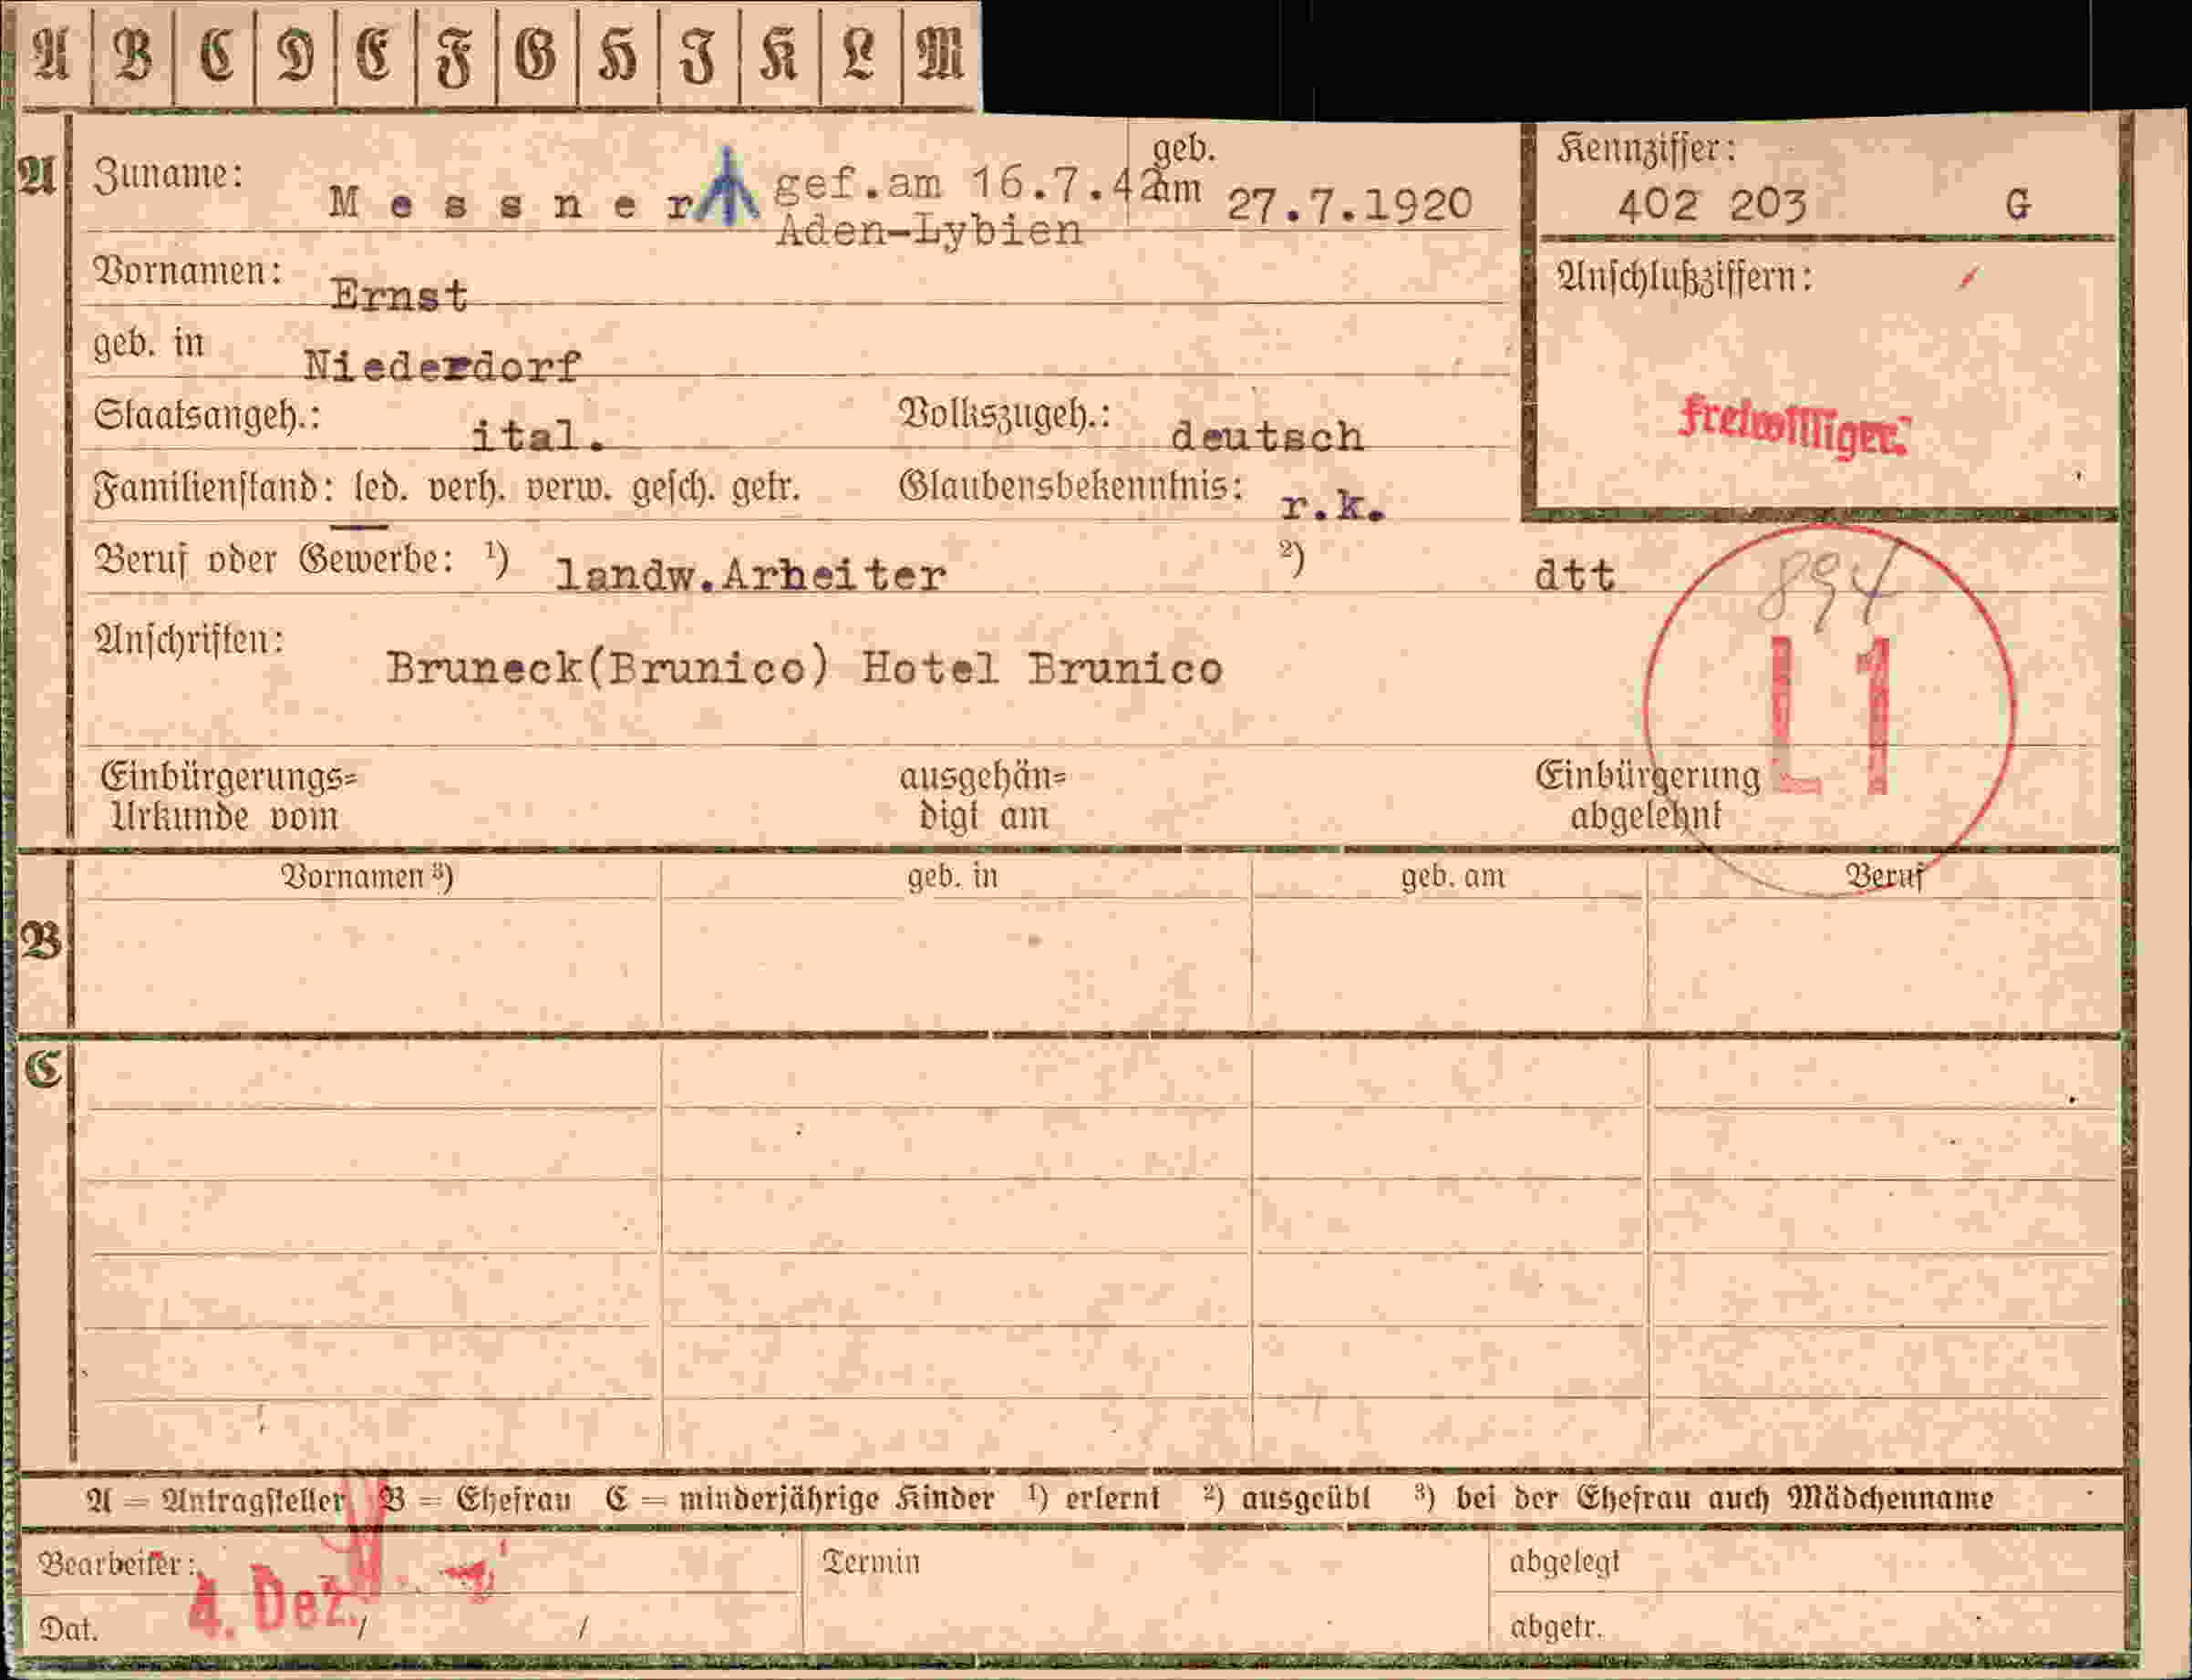 A B C D E F G H I K L M
A
Zuname: Messner gef.am 16.7.42 geb. am 27.7.1920
Aden-Lybien
Kennziffer:
402 203 G
Vornamen: Ernst
Anschlußziffern:
geb. in Niederdorf
Freiwilliger.
Staatsangeh.: ital. Volkszugeh.: deutsch
Familienstand: led. verh. verw. gesch. getr. Glaubensbekenntnis: r.k.
Beruf oder Gewerbe: ¹) landw.Arbeiter ²) dtt
894
L1
Anschriften: Bruneck(Brunico) Hotel Brunico
Einbürgerungs= ausgehän= Einbürgerung
Urkunde vom digt am abgelehnt
Vornamen ³) geb. in geb. am Beruf
B
C
A = Antragsteller B = Ehefrau C = minderjährige Kinder ¹) erlernt ²) ausgeübt ³) bei der Ehefrau auch Mädchenname
Bearbeiter: Termin abgelegt
Dat. 4. Dez. / / abgetr.